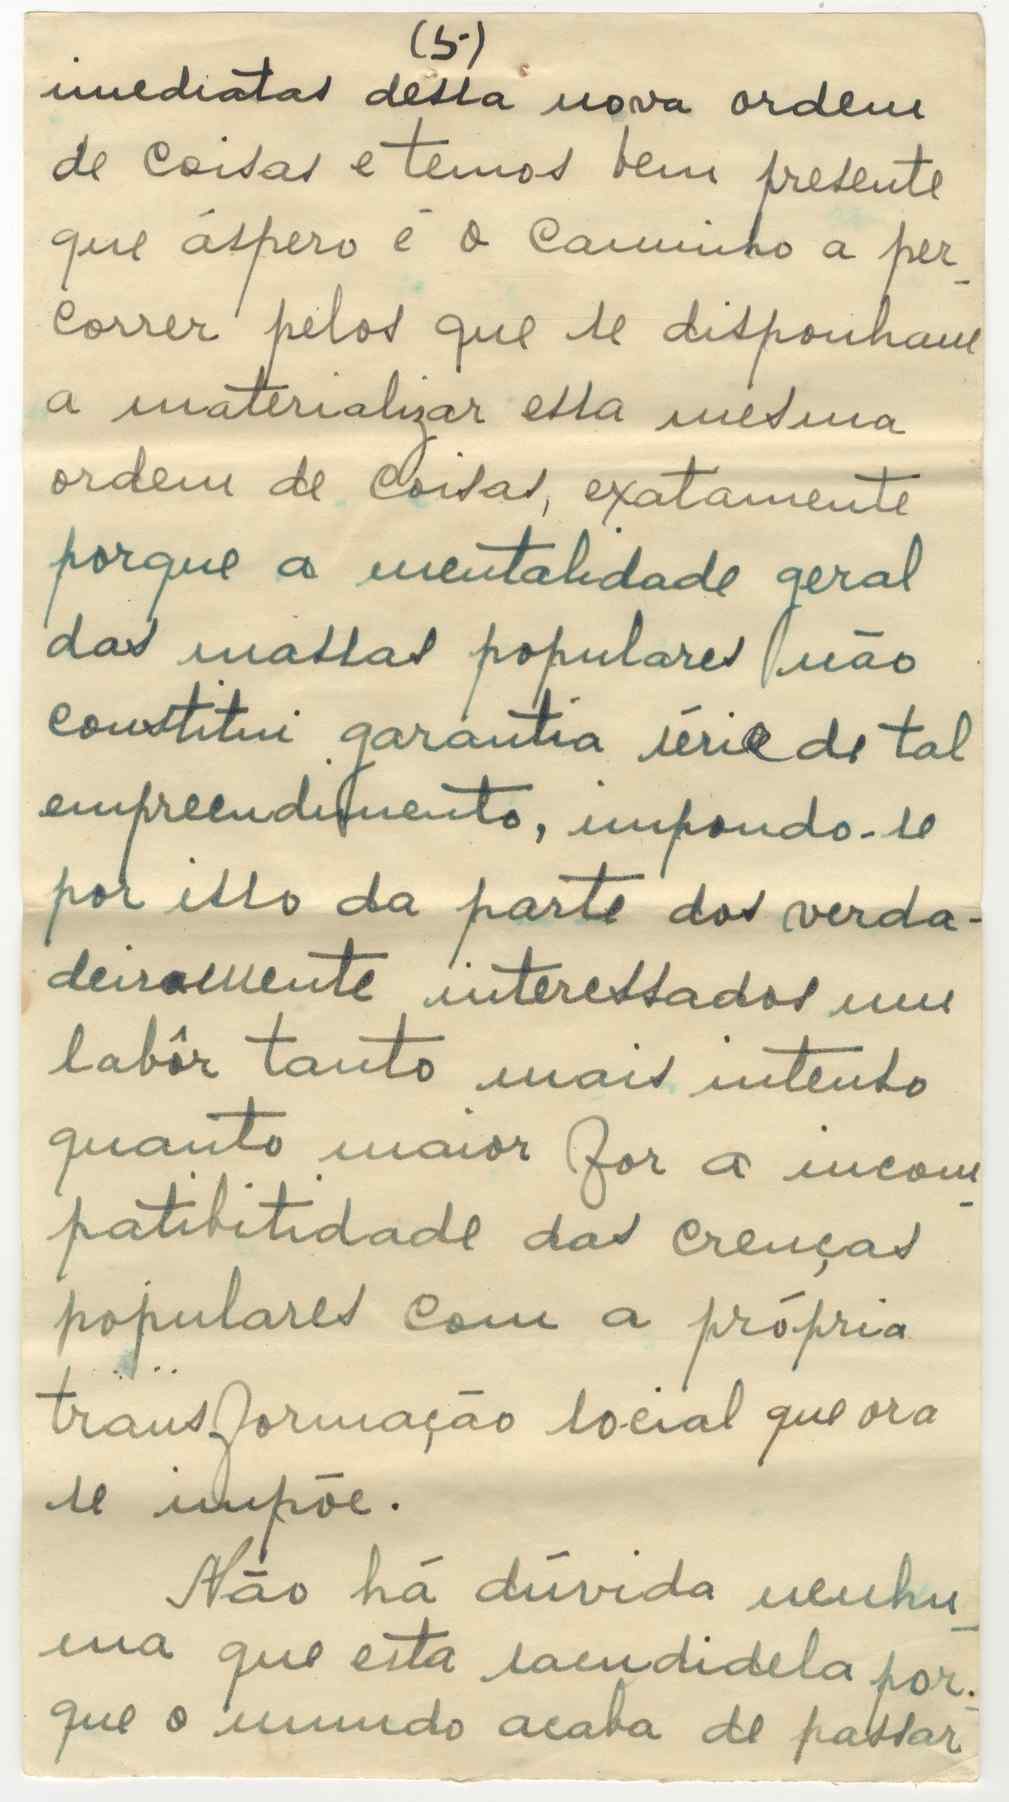 (5-)
imediatas dessa nova ordem
de coisas e temos bem presente
que áspero é o caminho a per-
correr pelos que se disponham
a materializar essa mesma
ordem de coisas, exatamente
porque a mentalidade geral
das massas populares não
constitui garantia séria de tal
empreendimento, impondo-se
por isso da parte dos verda-
deiramente interessados um
labôr tanto mais intenso
quanto maior for a incom-
patibilidade das crenças
populares com a própria
transformação social que ora
se impõe.
Não há dúvida nenhu-
ma que esta sacudidela por-
que o mundo acaba de passar